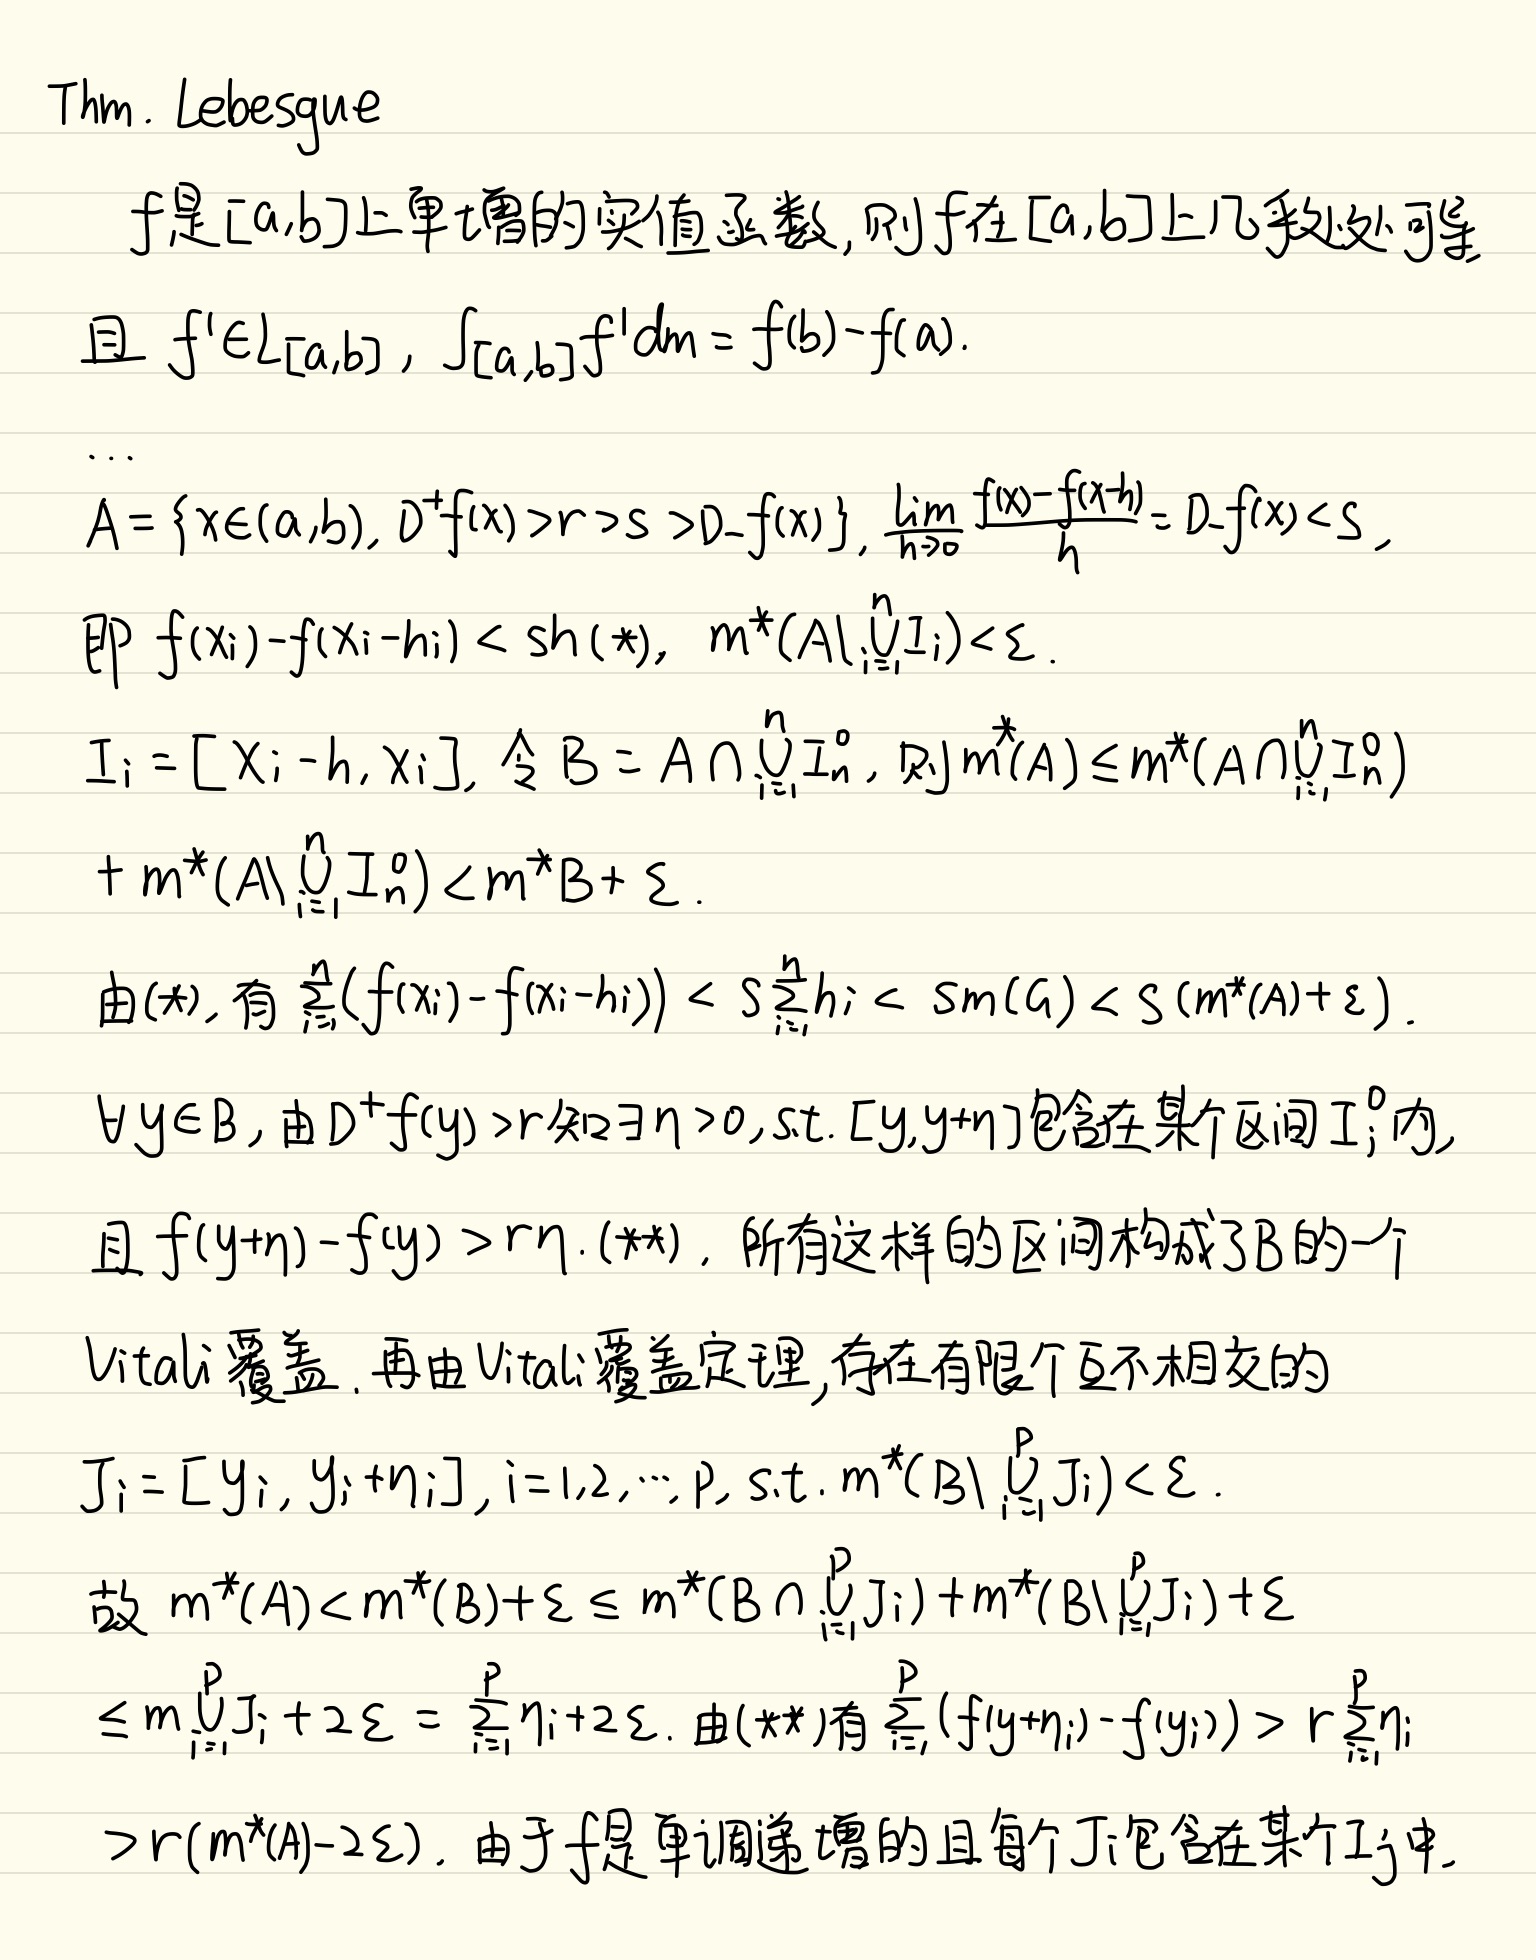 Thm. Lebesgue
f是[a,b]上单增的实值函数,则f在[a,b]上几乎处处可导
且 f'∈L[a,b], ∫[a,b]f'dm = f(b)-f(a).
...
A={x∈(a,b), D⁺f(x)>r>s>D_f(x)}, lim_{h→0} (f(x)-f(x-h))/h = D_f(x)<s,
即 f(xᵢ)-f(xᵢ-hᵢ)<sh(*), m*(A\⋃_{i=1}^{n}Iᵢ)<ε.
Iᵢ=[xᵢ-h, xᵢ], 令 B=A∩⋃_{i=1}^{n}Iₙ⁰, 则m*(A)≤m*(A∩⋃_{i=1}^{n}Iₙ⁰)
+m*(A\⋃_{i=1}^{n}Iₙ⁰)<m*B+ε.
由(*),有 ∑_{i=1}^{n}(f(xᵢ)-f(xᵢ-hᵢ))<s∑_{i=1}^{n}hᵢ<sm(G)<s(m*(A)+ε).
∀y∈B,由D⁺f(y)>r知∃η>0,s.t.[y,y+η]包含在某个区间Iᵢ⁰内,
且 f(y+η)-f(y)>rη.(**). 所有这样的区间构成了B的一个
Vitali覆盖.再由Vitali覆盖定理,存在有限个互不相交的
Jᵢ=[yᵢ, yᵢ+ηᵢ], i=1,2,…,p, s.t. m*(B\⋃_{i=1}^{p}Jᵢ)<ε.
故 m*(A)<m*(B)+ε≤m*(B∩⋃_{i=1}^{p}Jᵢ)+m*(B\⋃_{i=1}^{p}Jᵢ)+ε
≤m⋃_{i=1}^{p}Jᵢ+2ε=∑_{i=1}^{p}ηᵢ+2ε.由(**)有∑_{i=1}^{p}(f(y+ηᵢ)-f(yᵢ))>r∑_{i=1}^{p}ηᵢ
>r(m*(A)-2ε).由于f是单调递增的且每个Jᵢ包含在某个Iⱼ中.